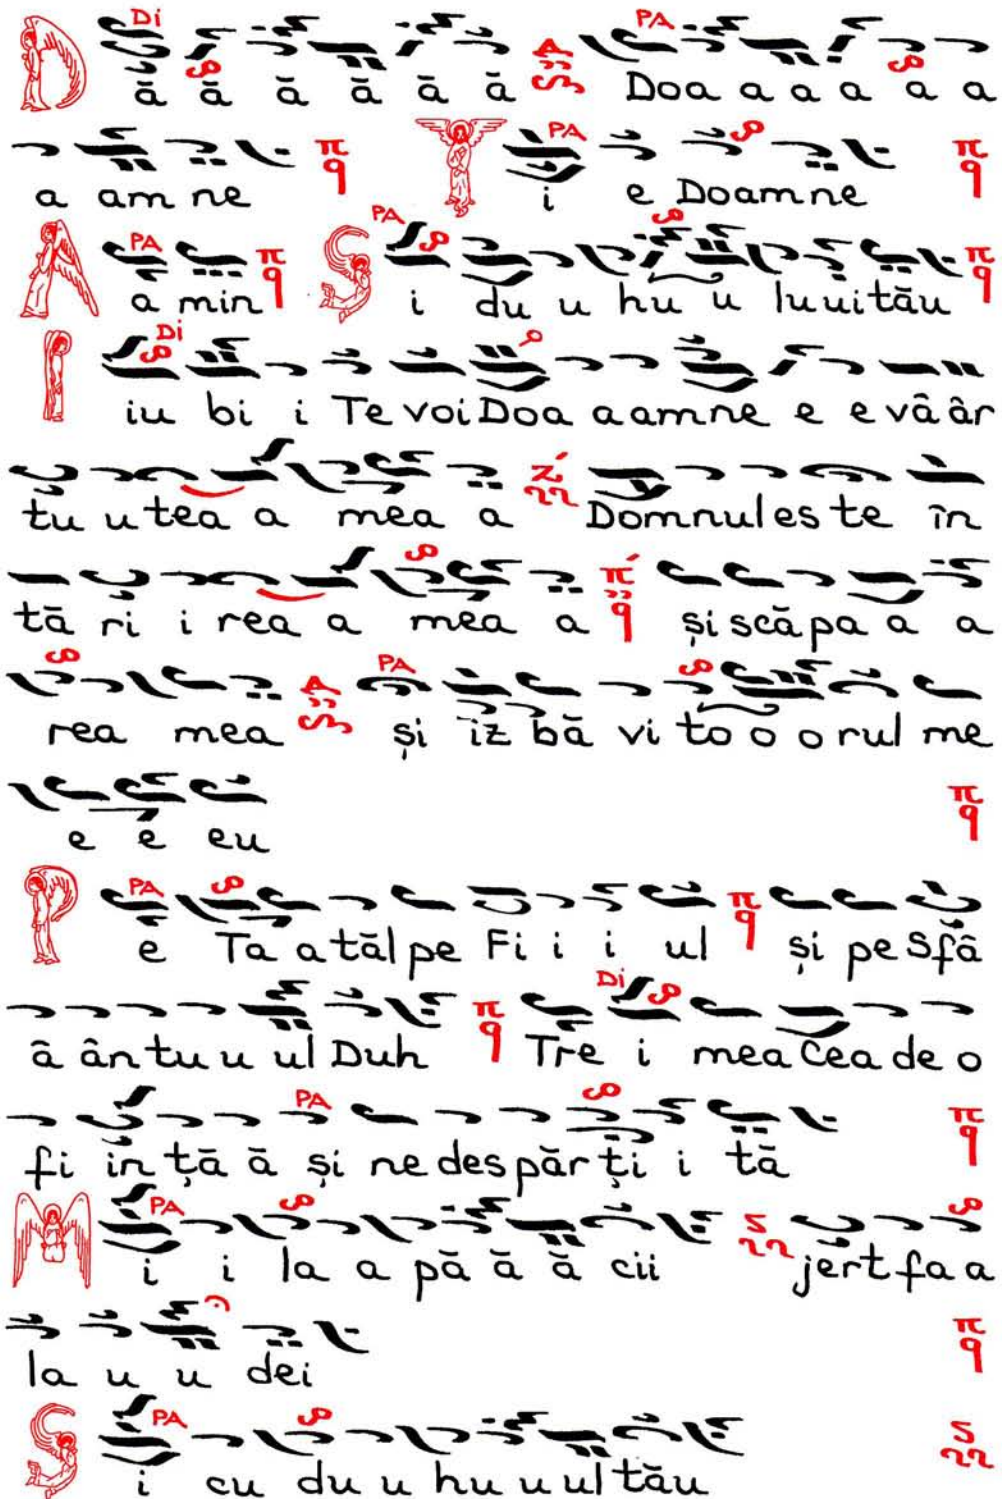 Dă ă ă ă ă ă Doa a a a a a
a am ne Ti e Doamne
A a min Și du u hu u lu ui tău
Iiu bi i Te voi Doa a amne e e vâ âr
tu u tea a mea a Domnul es te în
tă ri i rea a mea a și scă pa a a
rea mea și iz bă vi to o o rul me
e e eu
Pe Ta a tăl pe Fi i i ul și pe Sfâ
â ân tu u ul Duh Tre i mea Cea de o
fi in ță ă și ne des păr ți i tă
Mi i la a pă ă ă cii jert fa a
la u u dei
Și cu du u hu u ul tău